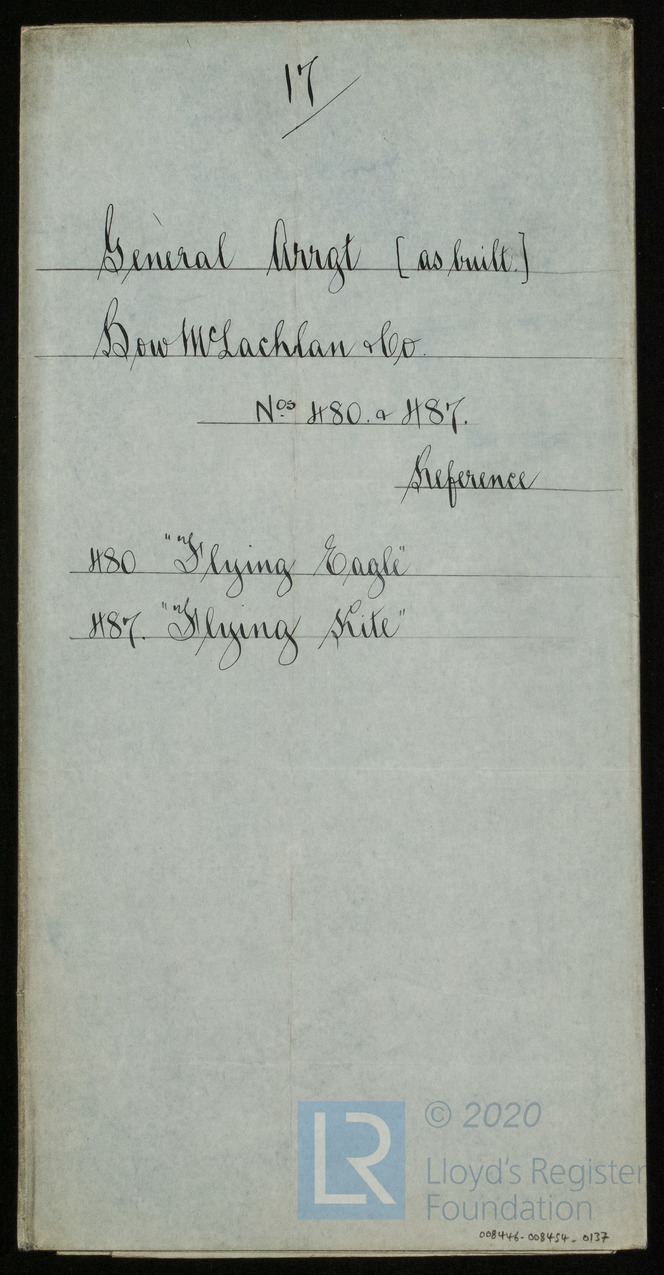 17
General Arrgt [as built.]
Bow McLachlan & Co.
Nos 480. & 487.
Reference
480 "Flying Eagle"
487. "Flying Kite"
© 2020
LR
Lloyd's Register
Foundation
008446-008454-0137